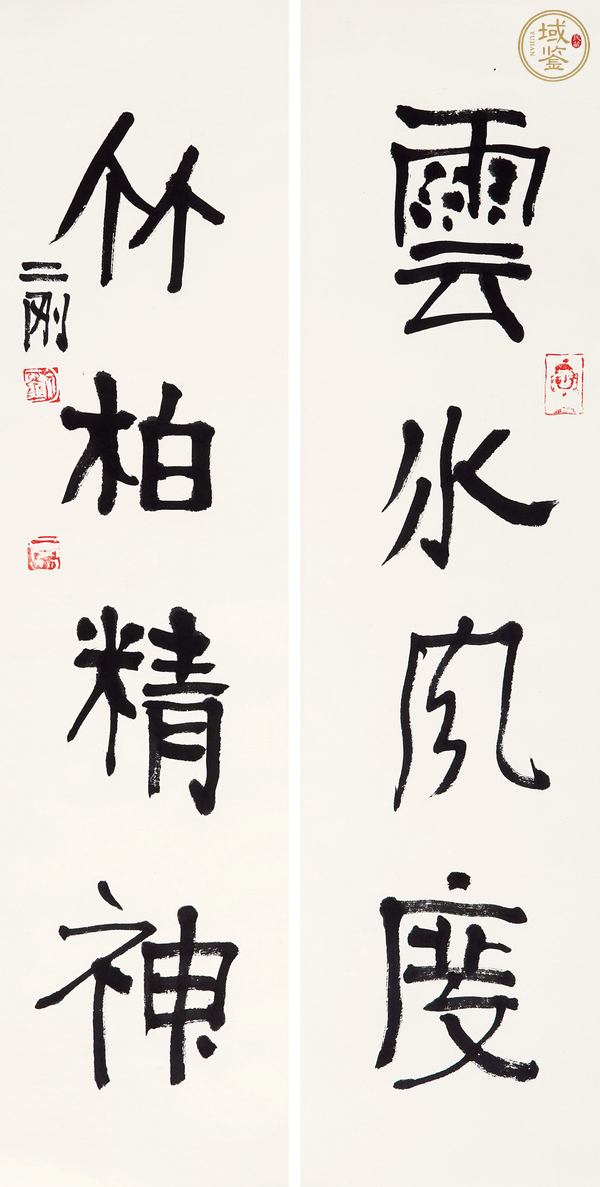 雲水風度
竹柏精神
二剛
域鉴
YUJIAN